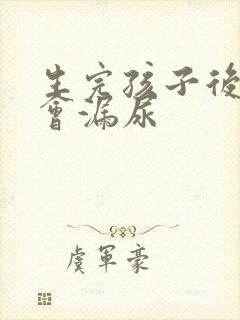 生完孩子後
會漏尿
虞軍豪